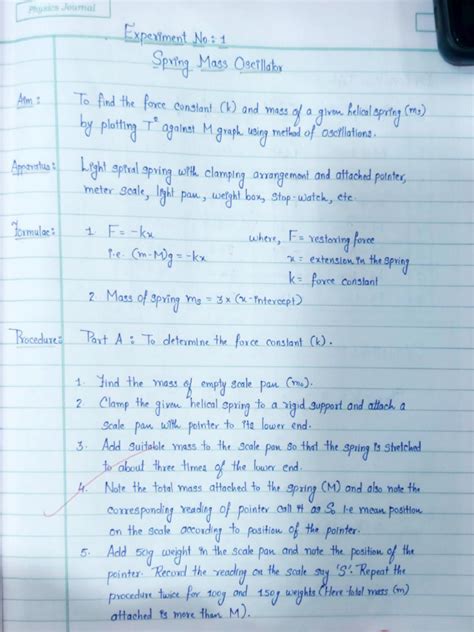 Physics Journal
Experiment No: 1
Spring Mass Oscillator
Aim: To find the force constant (k) and mass of a given helical spring (ms)
by plotting T² against M graph using method of oscillations.
Apparatus: Light spiral spring with clamping arrangement and attached pointer,
meter scale, light pan, weight box, stop-watch, etc.
Formulae: 1. F = -kx where, F = restoring force
i.e. (m-M)g = -kx x = extension in the spring
k = force constant
2. Mass of spring ms = 3 x (x-intercept)
Procedure: Part A : To determine the force constant (k).
1. Find the mass of empty scale pan (mo).
2. Clamp the given helical spring to a rigid support and attach a
scale pan with pointer to its lower end.
3. Add suitable mass to the scale pan so that the spring is stretched
to about three times of the lower end.
4. Note the total mass attached to the spring (M) and also note the
corresponding reading of pointer call it as So i.e mean position
on the scale according to position of the pointer.
5. Add 50g weight in the scale pan and note the position of the
pointer. Record the reading on the scale say 'S'. Repeat the
procedure twice for 100g and 150g weights (Here total mass (m)
attached is more than M).